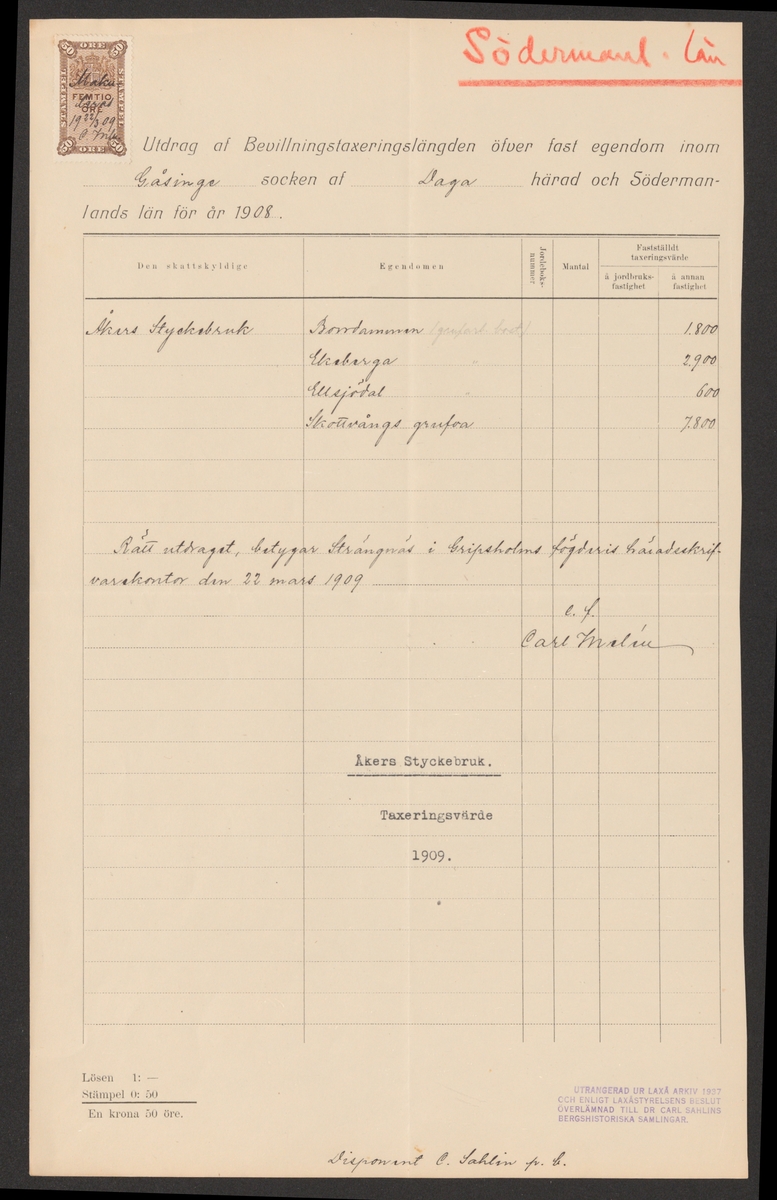 Södermanl. län
50 ÖRE 50
STÄMPEL STÄMPEL
Maku-
FEMTIO
leras
ÖRE
19 22/3 09
50 ÖRE 50
Utdrag af Bevillningstaxeringslängden öfver fast egendom inom
Gåsinge socken af Daga härad och Söderman-
lands län för år 1908.
Den skattskyldige Egendomen Jordeboks-nummer Mantal Fastställdt taxeringsvärde
å jordbruks-fastighet å annan fastighet
Åkers Styckebruk Borrdammen 1.800
Ekeberga " 2.900
Ellsjödal " 600
Skottvångs grufva 7.800
Rätt utdraget, betygar Strängnäs i Gripsholms fögderis häradsskrif-
varekontor den 22 mars 1909
e. f.
Carl Melin
Åkers Styckebruk.
Taxeringsvärde
1909.
Lösen 1: —
Stämpel 0: 50
En krona 50 öre.
UTRANGERAD UR LAXÅ ARKIV 1937
OCH ENLIGT LAXÅSTYRELSENS BESLUT
ÖVERLÄMNAD TILL DR CARL SAHLINS
BERGSHISTORISKA SAMLINGAR.
Disponent C. Sahlin p. b.